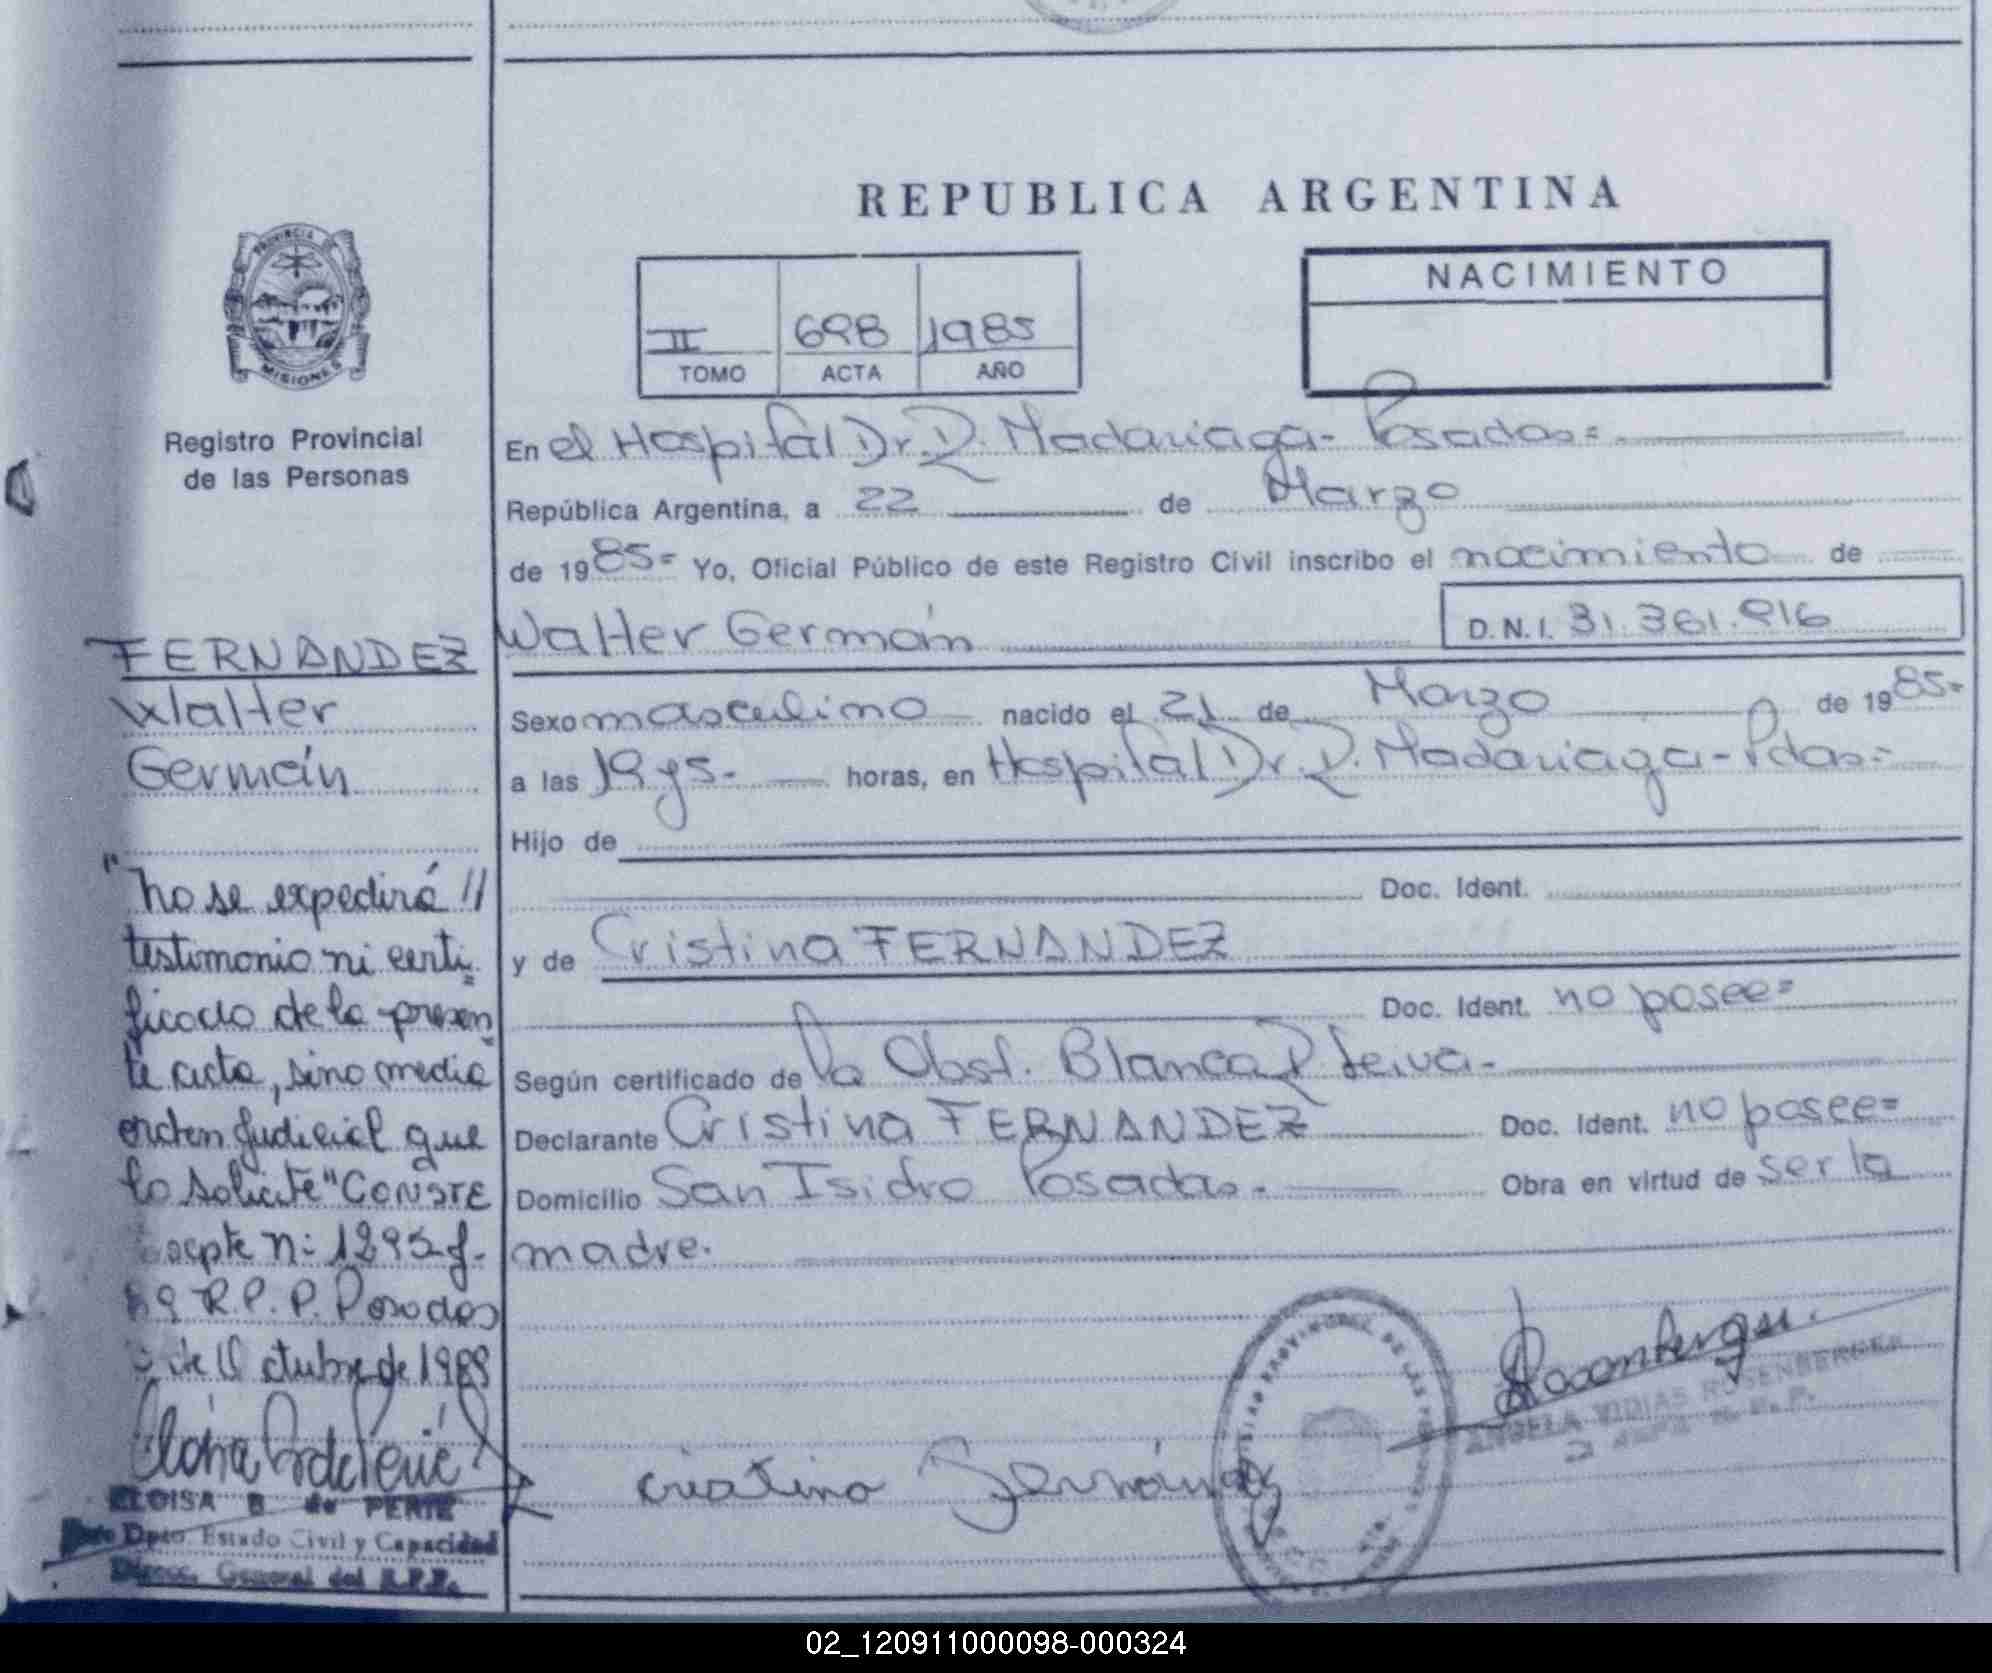 REPUBLICA ARGENTINA
PROVINCIA DE
MISIONES
Registro Provincial
de las Personas
NACIMIENTO
II 698 1985
TOMO ACTA AÑO
En el Hospital Dr. R. Madariaga- Posadas=
República Argentina, a 22 de Marzo
de 1985= Yo, Oficial Público de este Registro Civil inscribo el nacimiento de
Walter Germán D.N.I. 31.361.916
Sexo masculino nacido el 21 de Marzo de 1985=
a las 19 y 5.- horas, en Hospital Dr. R. Madariaga- Pdas=
Hijo de
Doc. Ident.
y de Cristina FERNANDEZ
Doc. Ident. no posee=
Según certificado de la Obst. Blanca R. Leiva.-
Declarante Cristina FERNANDEZ Doc. Ident. no posee=
Domicilio San Isidro Posadas.- Obra en virtud de ser la
madre.
FERNANDEZ
Walter
Germán
"no se expedirá //
testimonio ni certi=
ficado de la presen=
te acta, sino media
orden judicial que
lo solicite" CONSTE
expte nº 1293
R.P.P. Posadas
de Octubre de 1989
ELOISA B de PERIE
Dpto. Estado Civil y Capacidad
Direcc. General del R.P.P.
Cristina Fernández
Rosenberger
ANGELA VIDIAS ROSENBERGER
02_120911000098-000324